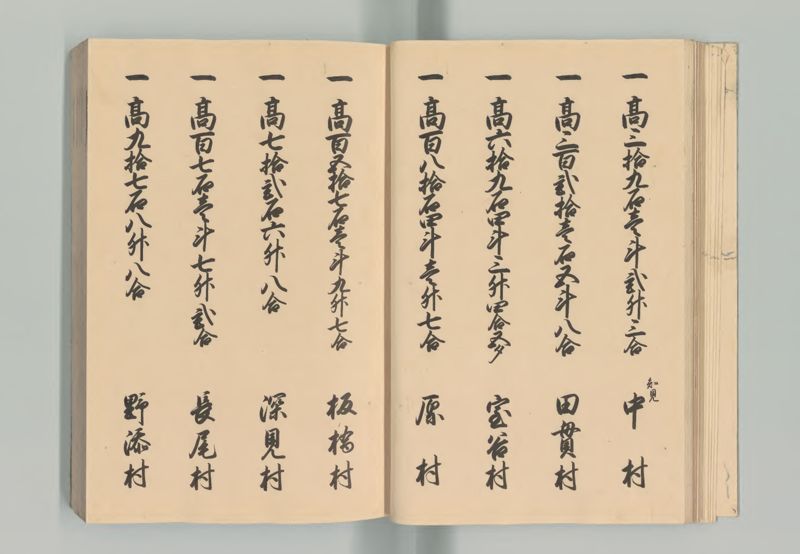 一 高三拾九石壱斗弐升三合 知見 中村
一 高三百弐拾壱石五斗八合 田貫村
一 高六拾九石四斗三升四合五夕 室谷村
一 高百八拾石四斗壱升七合 原村
一 高百五拾七石壱斗九升七合 板橋村
一 高七拾弐石六升八合 深見村
一 高百七石壱斗七升弐合 長尾村
一 高九拾七石八升八合 野添村